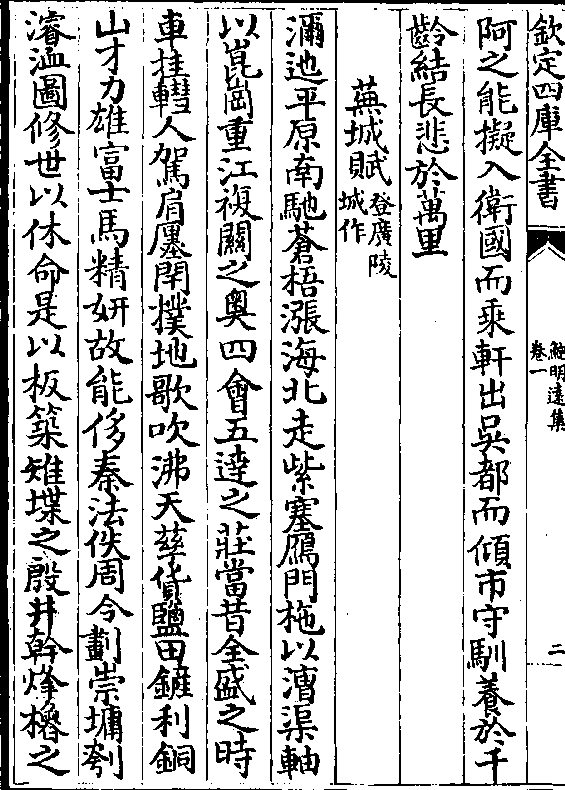 欽定四庫全書
鮑明遠集
卷一
二
阿之能擬入衛國而乘軒出吳都而傾市守馴養於千
齡結長悲於萬里
蕪城賦登廣陵城作
瀰迆平原南馳蒼梧漲海北走紫塞鴈門柂以漕渠軸
以崑崗重江複關之奥四會五達之莊當昔全盛之時
車挂轊人駕肩廛閈撲地歌吹沸天孳貨鹽田鏟利銅
山才力雄富士馬精妍故能侈秦法佚周令劃崇墉刳
濬洫圖修世以休命是以板築雉堞之殷井幹烽櫓之